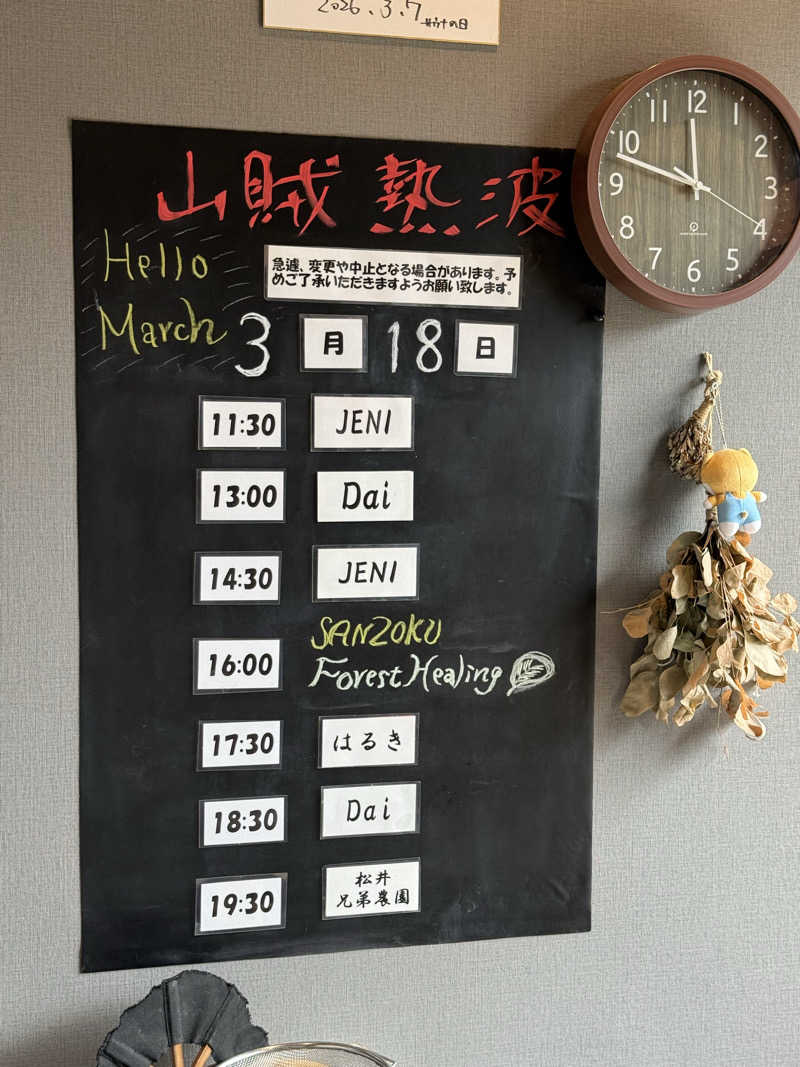 2026.3.7
サウナの日
山賊熱波
Hello
March
急遽、変更や中止となる場合があります。予
めご了承いただきますようお願い致します。
3月18日
11:30 JENI
13:00 Dai
14:30 JENI
16:00 SANZOKU
Forest Healing
17:30 はるき
18:30 Dai
19:30 松井
兄弟農園
12
1
2
3
4
5
6
7
8
9
10
11